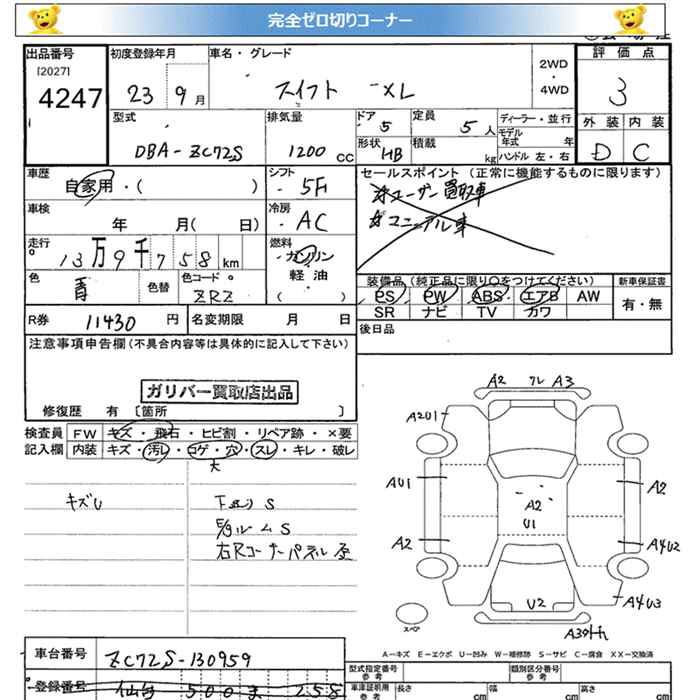 完全ゼロ切りコーナー
出品番号
[2027]
4247
初度登録年月
23 9月
車名・グレード
スイフト XL
2WD
・
4WD
評価点
3
外装 内装
D C
型式
DBA-ZC72S
排気量
1200 cc
ドア
5
定員
5人
形状
HB
積載
kg
ディーラー・並行
モデル年式 年
ハンドル 左・右
車歴
自家用・( )
シフト
5F
車検
年 月( 日)
冷房
AC
走行
13万9千758 km
燃料
ガソリン
軽油
( )
色
青
色替
色コード
ZRZ
セールスポイント(正常に機能するものに限ります)
※ユーザー買取車
※マニュアル車
装備品(純正品に限り○をつけてください)
PS PW ABS エアB AW
SR ナビ TV カワ
新車保証書
有・無
後日品
R券 11430 円
名変期限 月 日
注意事項申告欄(不具合内容等は具体的に記入して下さい)
ガリバー買取店出品
修復歴 有 〔箇所 〕
検査員記入欄
FW キズ・飛石・ヒビ割・リペア跡・×要
内装 キズ・汚レ・コゲ・穴・スレ・キレ・破レ
大
キズU
下回りS
E/gルームS
右Rコーナーパネル歪
A2 フレ A3
A2U1
AU1
A2
A2
U1
A2
A4U2
U2
A4U3
スペア
A―キズ E―エクボ U―凹み W―補修跡 S―サビ C―腐食 XX―交換済
車台番号 ZC72S-130959
登録番号 仙台 500 ま 258
型式指定番号
参考
類別区分番号
参考
車津証明用
参考
長さ cm
幅 cm
高さ cm